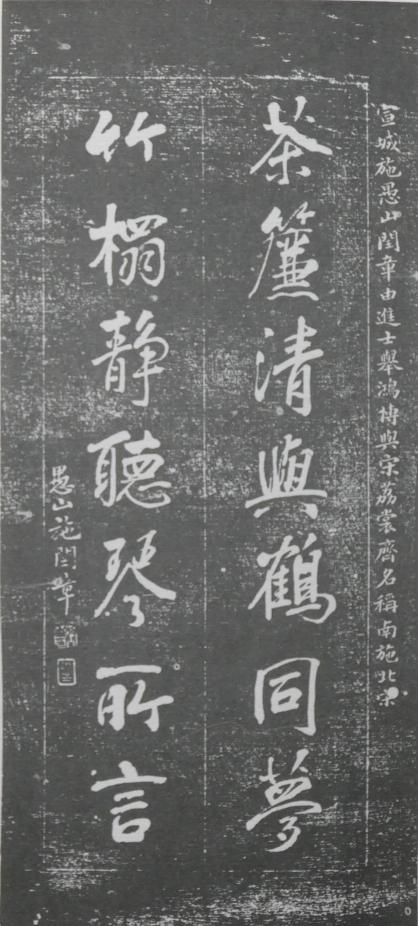 宣城施愚山閏章由進士舉鴻博與宋荔裳齊名稱南施北宋
茶簾清與鶴同夢
竹榻静聽琴所言
愚山施閏章